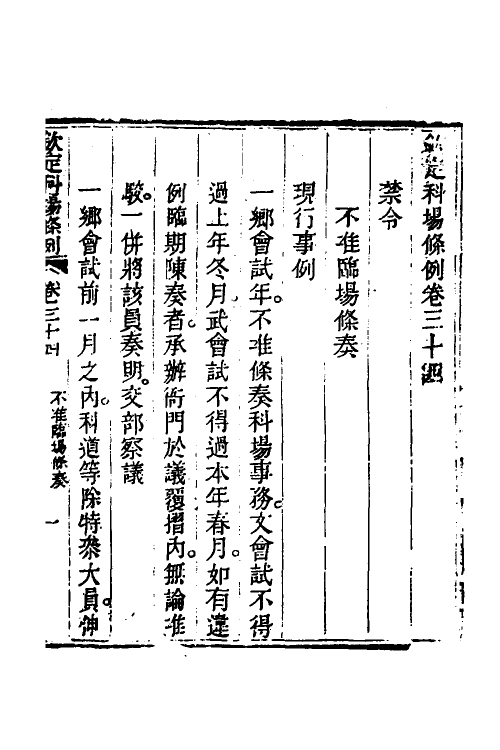 欽定科場條例卷三十四
禁令
不准臨場條奏
現行事例
一鄉會試年。不准條奏科場事務。文會試不得
過上年冬月。武會試不得過本年春月。如有違
例臨期陳奏者。承辦衙門於議覆摺內。無論准
駮。一併將該員奏明。交部察議
一鄉會試前一月之內。科道等除特叅大員。伸
欽定科場條例
卷三十四
不准臨場條奏
一